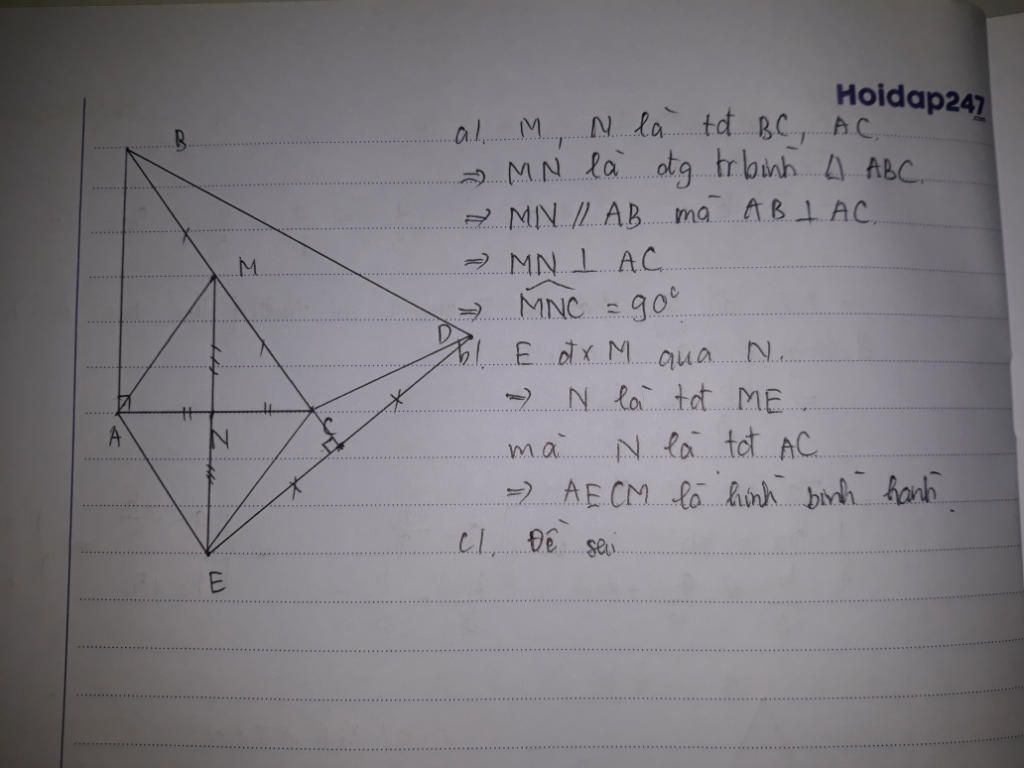 Hoidap247
.com
a). M, N là tđ BC, AC.
⇒ MN là đtg tr bình △ ABC.
⇒ MN // AB mà AB ⊥ AC.
⇒ MN ⊥ AC
⇒ MNC = 90°
b). E đx M qua N.
⇒ N là tđ ME.
mà N là tđ AC
⇒ AECM là hình bình hành.
c). Đề sai
B
M
D
A
N
C
E